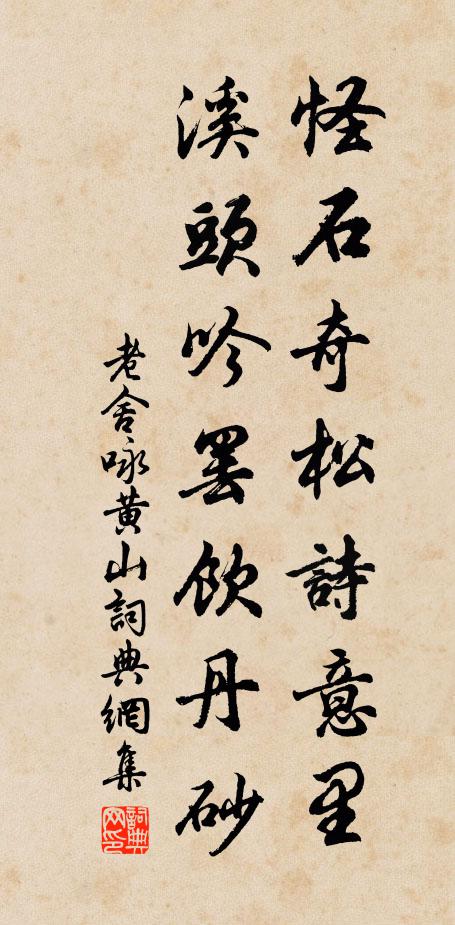 怪石奇松詩意里
溪頭吟罢飲丹砂
老舍咏黄山詞典網集
詞典网印